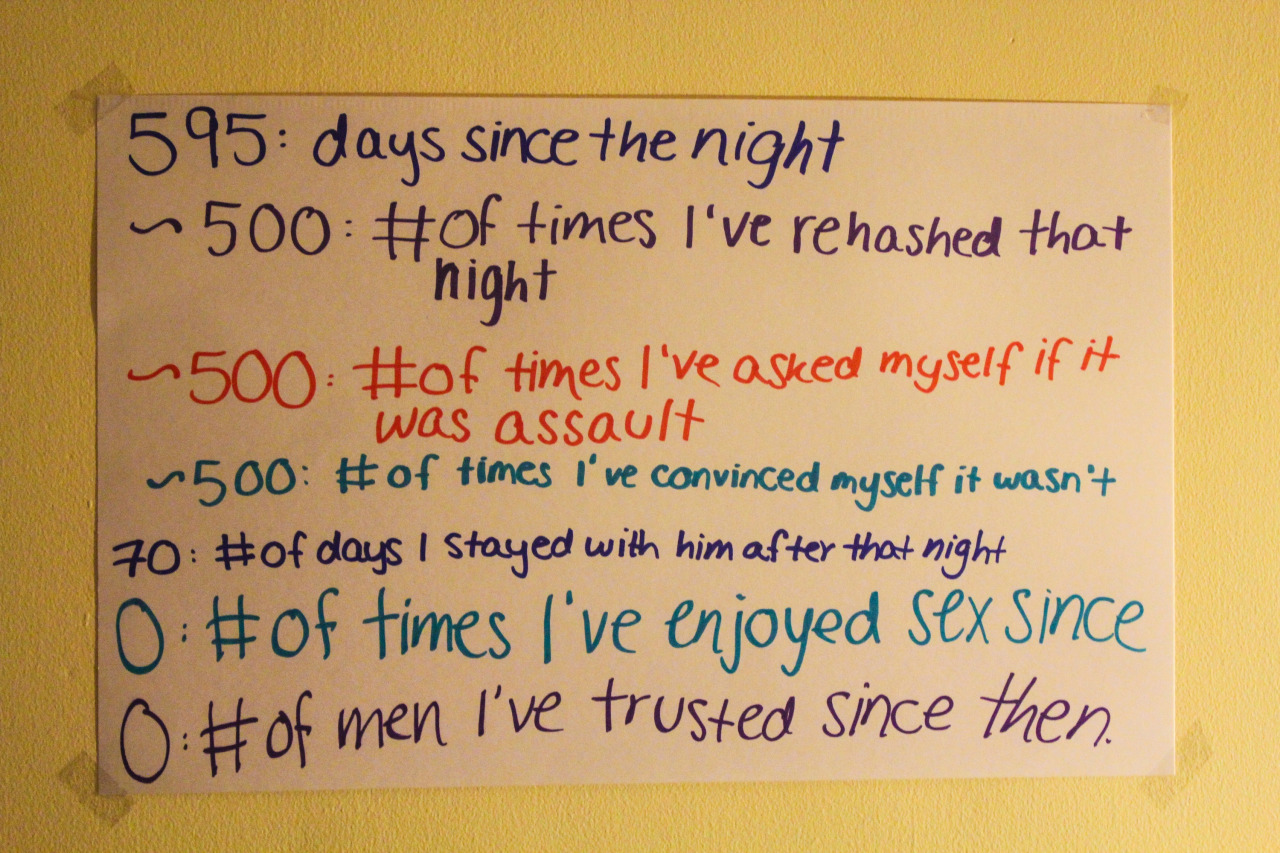 595: days since the night
~500: # of times I've rehashed that
night
~500: # of times I've asked myself if it
was assault
~500: # of times I've convinced myself it wasn't
70: # of days I stayed with him after that night
0: # of times I've enjoyed sex since
0: # of men I've trusted since then.